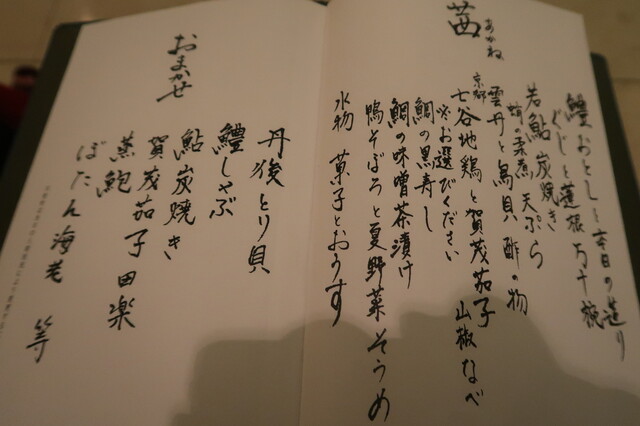 茜 あかね
鱧おとしと本日の造り
ぐじと蓮根万十椀
若鮎炭焼き
蛸の柔煮 天ぷら
雲丹と鳥貝酢の物
京都七谷地鶏と賀茂茄子 山椒なべ
※お選びください
鯛の黒寿し
鯛の味噌茶漬け
鴨そぼろと夏野菜そうめ
水物 菓子とおうす
おまかせ
丹後とり貝
鱧しゃぶ
鮎炭焼き
賀茂茄子田楽
蒸鮑
ぼたん海老 等